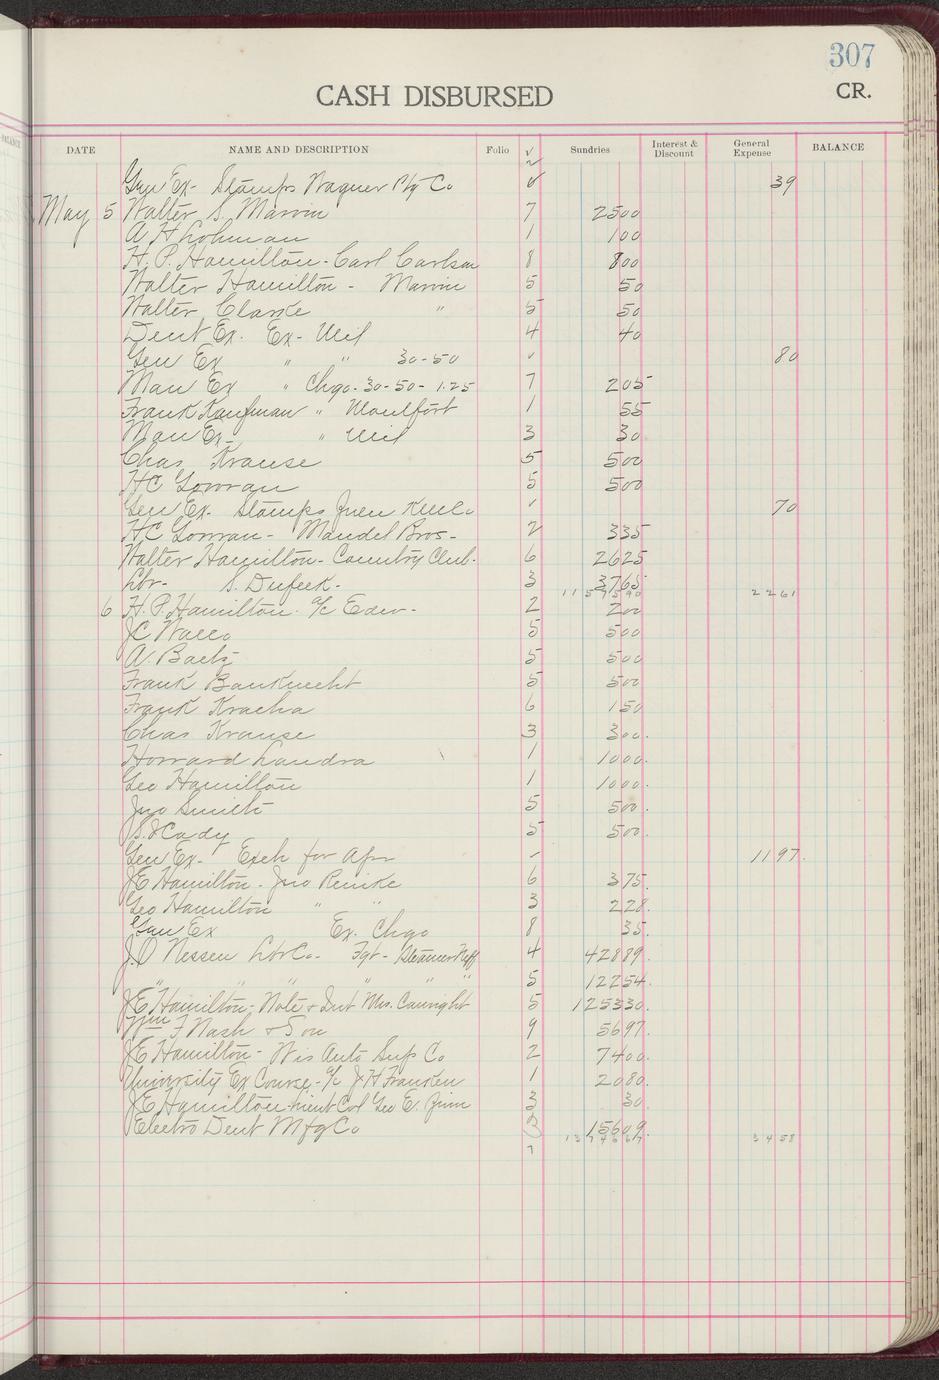 307
CASH DISBURSED
CR.
DATE NAME AND DESCRIPTION Folio √ Sundries Interest & Discount General Expense BALANCE
Gen Ex- Stamps Wagner Ptg Co √ 39
May 5 Walter S. Marvin 7 2500
A H Lohman 1 100
H. P. Hamilton - Carl Carlson 8 800
Walter Hamilton - Marvin 5 50
Walter Clarke " 5 50
Dent Ex. Ex- Mil 4 40
Gen Ex " " 30-50 √ 80
Man Ex " Chgo-30-50-1.25 7 205
Frank Kaufman " 1 55
Man Ex- " Mil 3 30
Chas Krause 5 500
HC Gowran 5 500
Gen Ex- Stamps √ 70
HC Gowran - Mandel Bros- 2 335
Walter Hamilton - Country Club- 6 2625
Lbr- S. Dufeck- 3 3765
1157590 2261
6 H. P. Hamilton a/c Eden- 2 200
JC 5 500
A. Baetz 5 500
Frank Bauknecht 5 500
Frank Kracha 6 150
Chas Krause 3 300.
Howard Landra 1 1000.
Geo Hamilton 1 1000.
Jno Smith 5 500.
Cady 5 500.
Gen Ex- Exch for Apr √ 1197.
JE Hamilton - Jno Reinke 6 375.
Geo Hamilton " " 3 228.
Gen Ex Ex. Chgo 8 35.
J.O Nessen Lbr Co- Fgt- Steamer Neff 4 42889.
" " " " " 5 12254.
JE Hamilton - Note & Int Mrs. Canright 5 125330.
Wm F Nash & Son 9 5697.
JE Hamilton - Wis Auto Sup Co 2 7400.
University Ex Course - a/c J H Franken 1 2080.
JE Hamilton - Lieut Col Geo E. 3 30
Electro Dent Mfg Co 2 15609.
7 3458